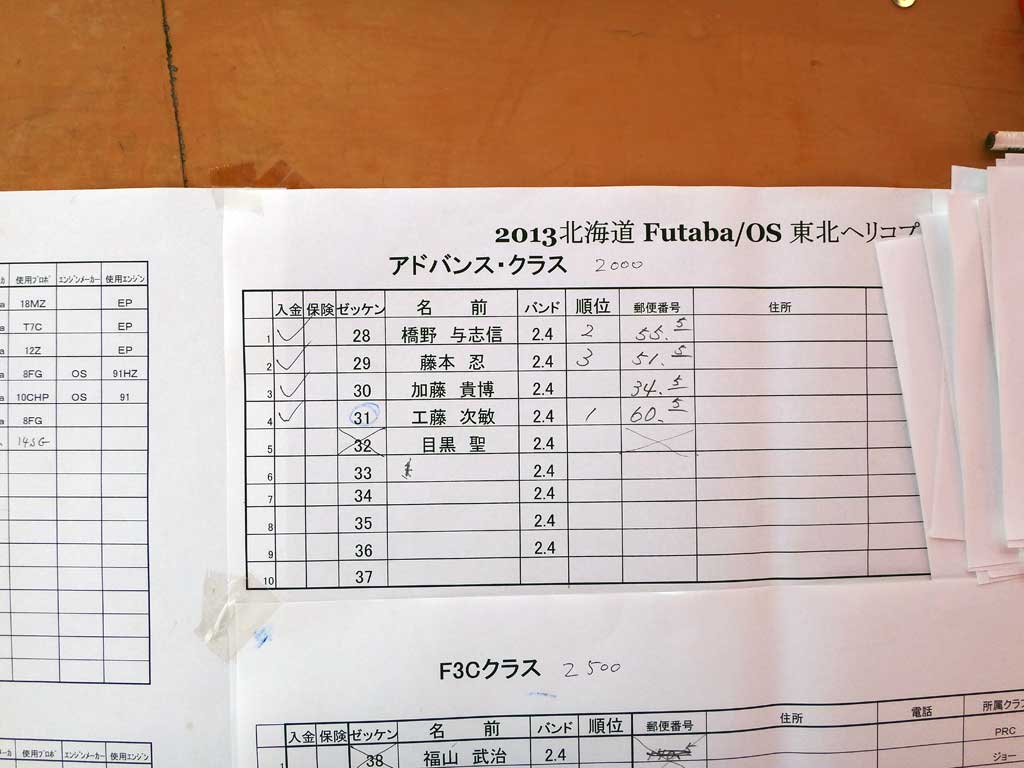 2013北海道 Futaba/OS 東北ヘリコプ
アドバンス・クラス 2000
入金 保険 ゼッケン 名 前 バンド 順位 郵便番号 住所
1 28 橋野 与志信 2.4 2 55.5
2 29 藤本 忍 2.4 3 51.5
3 30 加藤 貴博 2.4 34.5
4 31 工藤 次敏 2.4 1 60.5
5 32 目黒 聖 2.4
6 33 2.4
7 34 2.4
8 35 2.4
9 36 2.4
10 37
使用プロポ エンジンメーカー 使用エンジン
a 18MZ EP
a T7C EP
a 12Z EP
a 8FG OS 91HZ
a 10CHP OS 91
a 8FG
14SG
F3Cクラス 2500
入金 保険 ゼッケン 名 前 バンド 順位 郵便番号 住所 電話 所属クラ
1 38 福山 武治 2.4 PRC
ジョー
ーカ 使用プロポ エンジンメーカー 使用エンジン